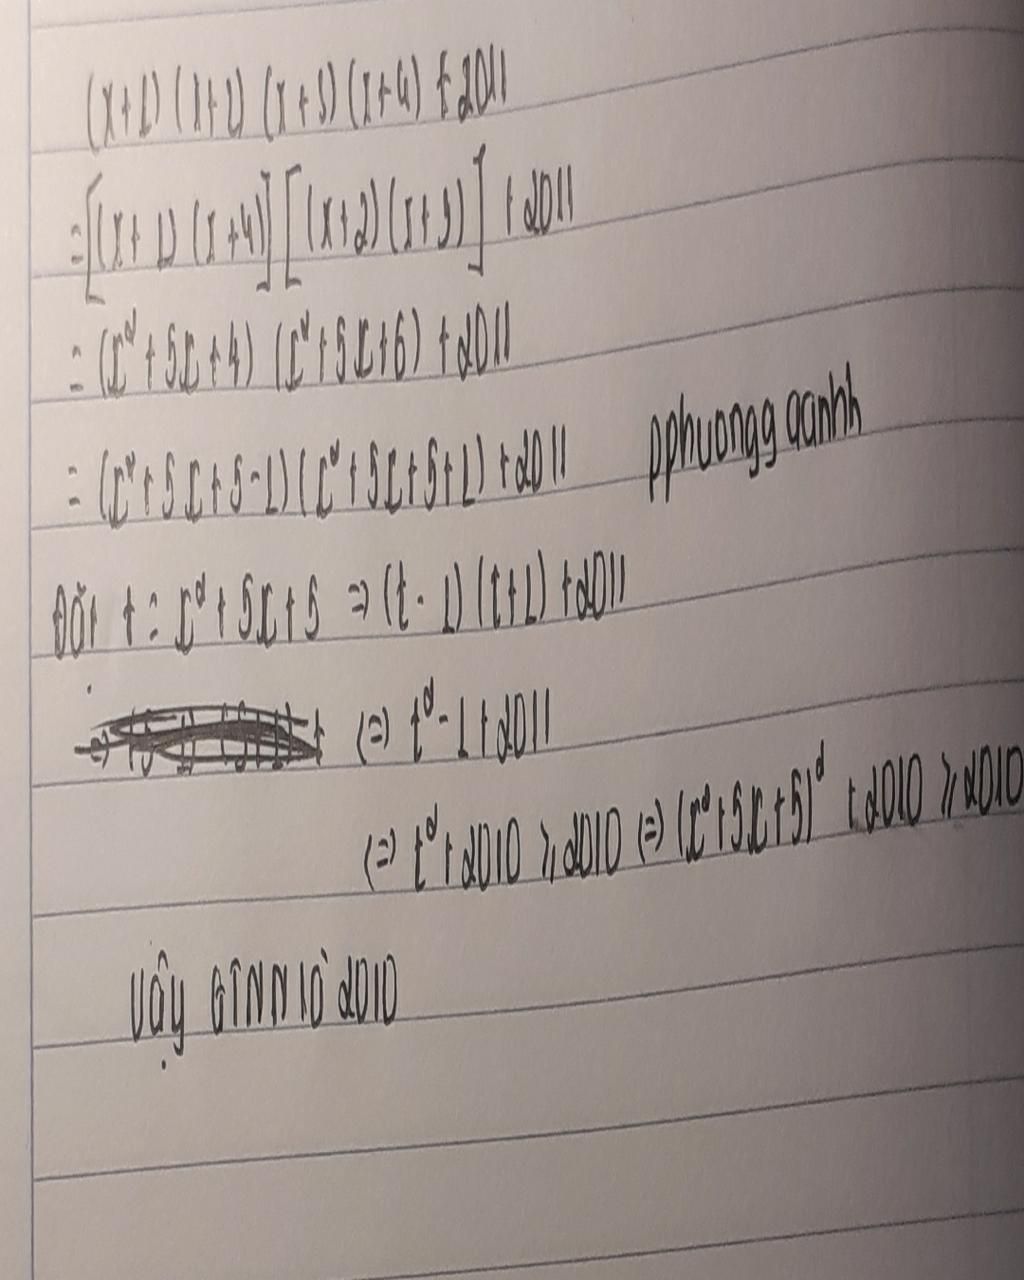 (x+1)(x+2)(x+3)(x+4)+2011
=[(x+1)(x+4)][(x+2)(x+3)]+2011
=(x²+5x+4)(x²+5x+6)+2011
=(x²+5x+5-1)(x²+5x+5+1)+2011
pphuongg qanhh
Đặt t=x²+5x+5 ⇒(t-1)(t+1)+2011
⇔ t²-1+2011
⇔ t²+2010 ⩾2010 ⇔(x²+5x+5)²+2010 ⩾2010
Vậy GTNN là 2010